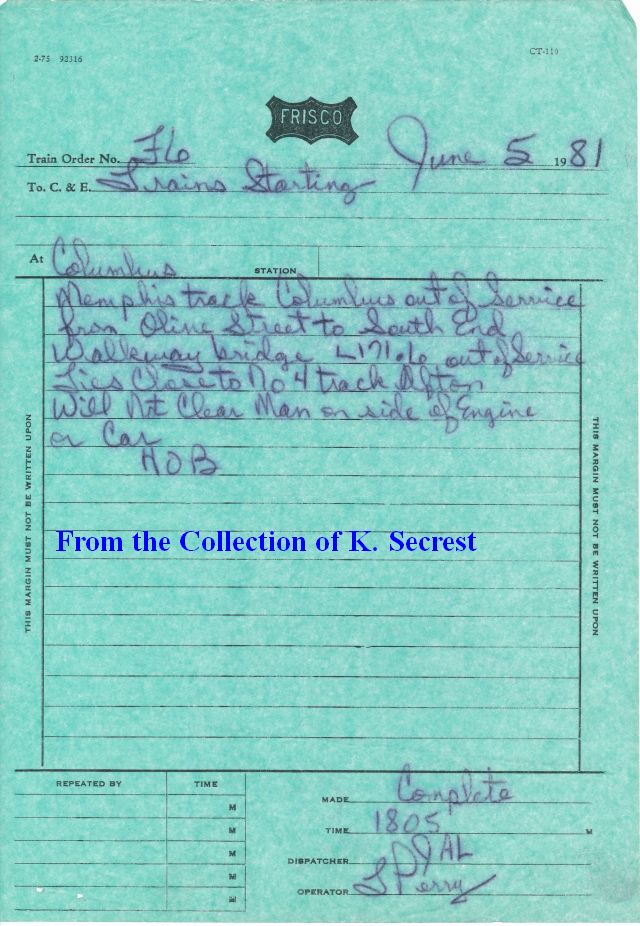 2-75 92316
CT-110
FRISCO
Train Order No. 76 June 5 1981
To. C. & E. Trains Starting
At Columbus STATION
Memphis track Columbus out of Service
from Oline Street to South End
Walkway bridge L171.6 out of Service
Ties Close to No 4 track Afton
Will Not Clear Man on side of Engine
or Car
HOB
THIS MARGIN MUST NOT BE WRITTEN UPON
THIS MARGIN MUST NOT BE WRITTEN UPON
From the Collection of K. Secrest
REPEATED BY TIME
M
M
M
M
M
MADE Complete
TIME 1805 M
DISPATCHER JAL
OPERATOR Perry